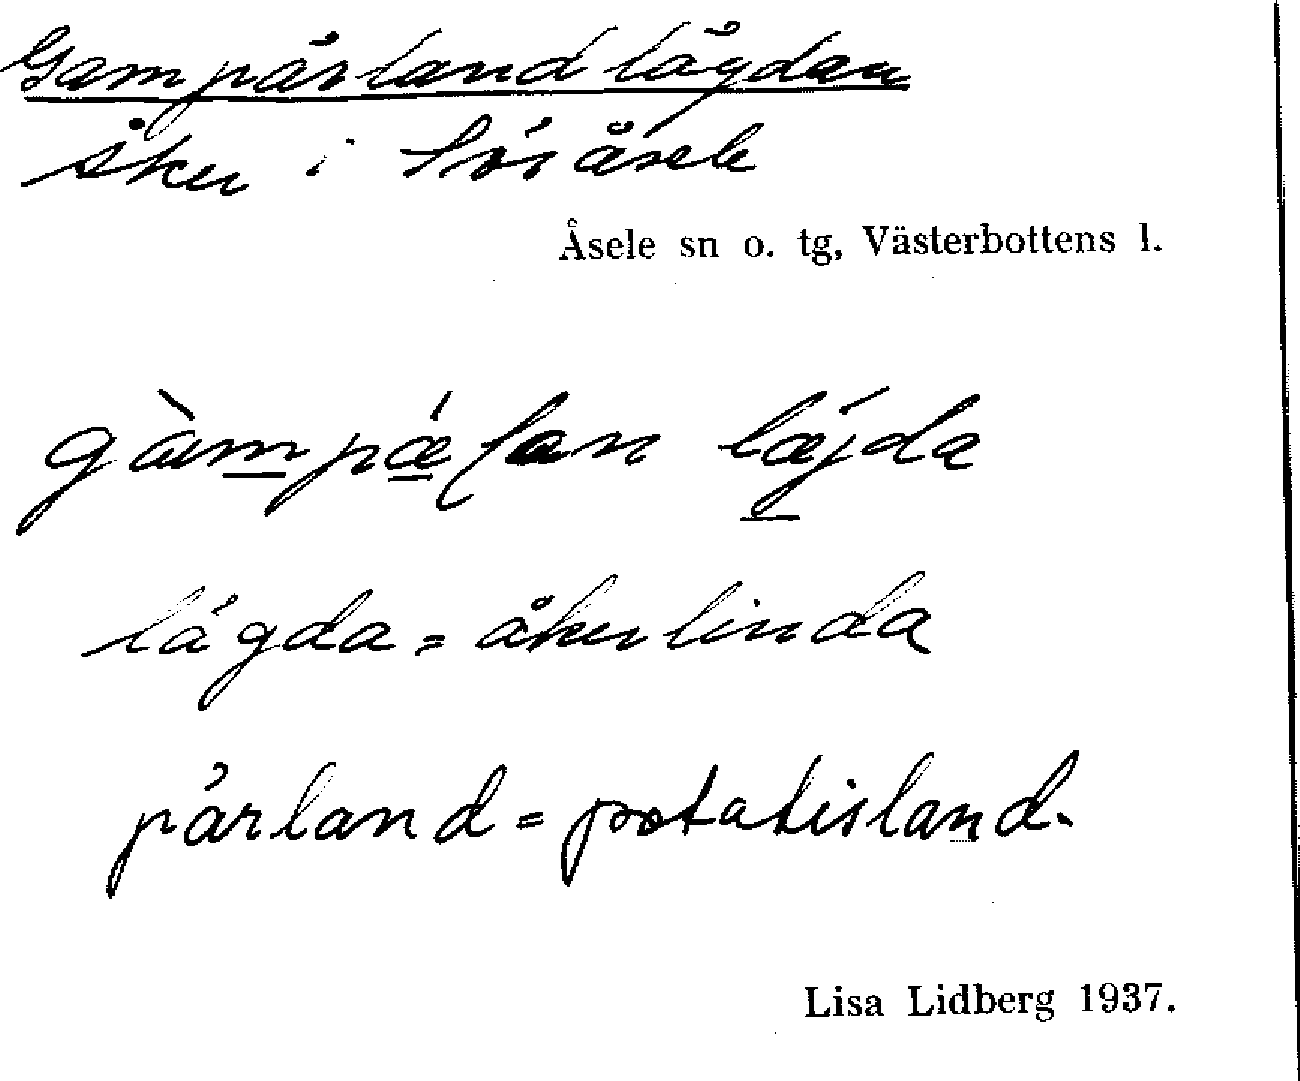 Gampärlandlägdan
åker i Söråsele
Åsele sn o. tg, Västerbottens l.
gàmpǽlan læ̀jda
lägda = åkerlinda
pärland = potatisland.
Lisa Lidberg 1937.